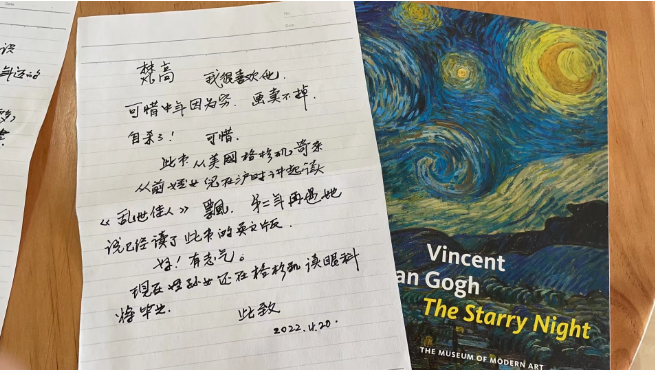 梵高 我很喜欢他.
可惜中年因为穷. 画卖不掉.
自杀了! 可惜.
此书从美国格杉矶寄来
从前姪女兒在沪时讲起读
《乱世佳人》飘. 第二年再遇她
说已经读了此书的英文版.
好! 有志气。
现在姪孙女还在格杉矶读眼科
毕业. 此致
2022.4.20.
Vincent
an Gogh
The Starry Night
THE MUSEUM OF MODERN ART